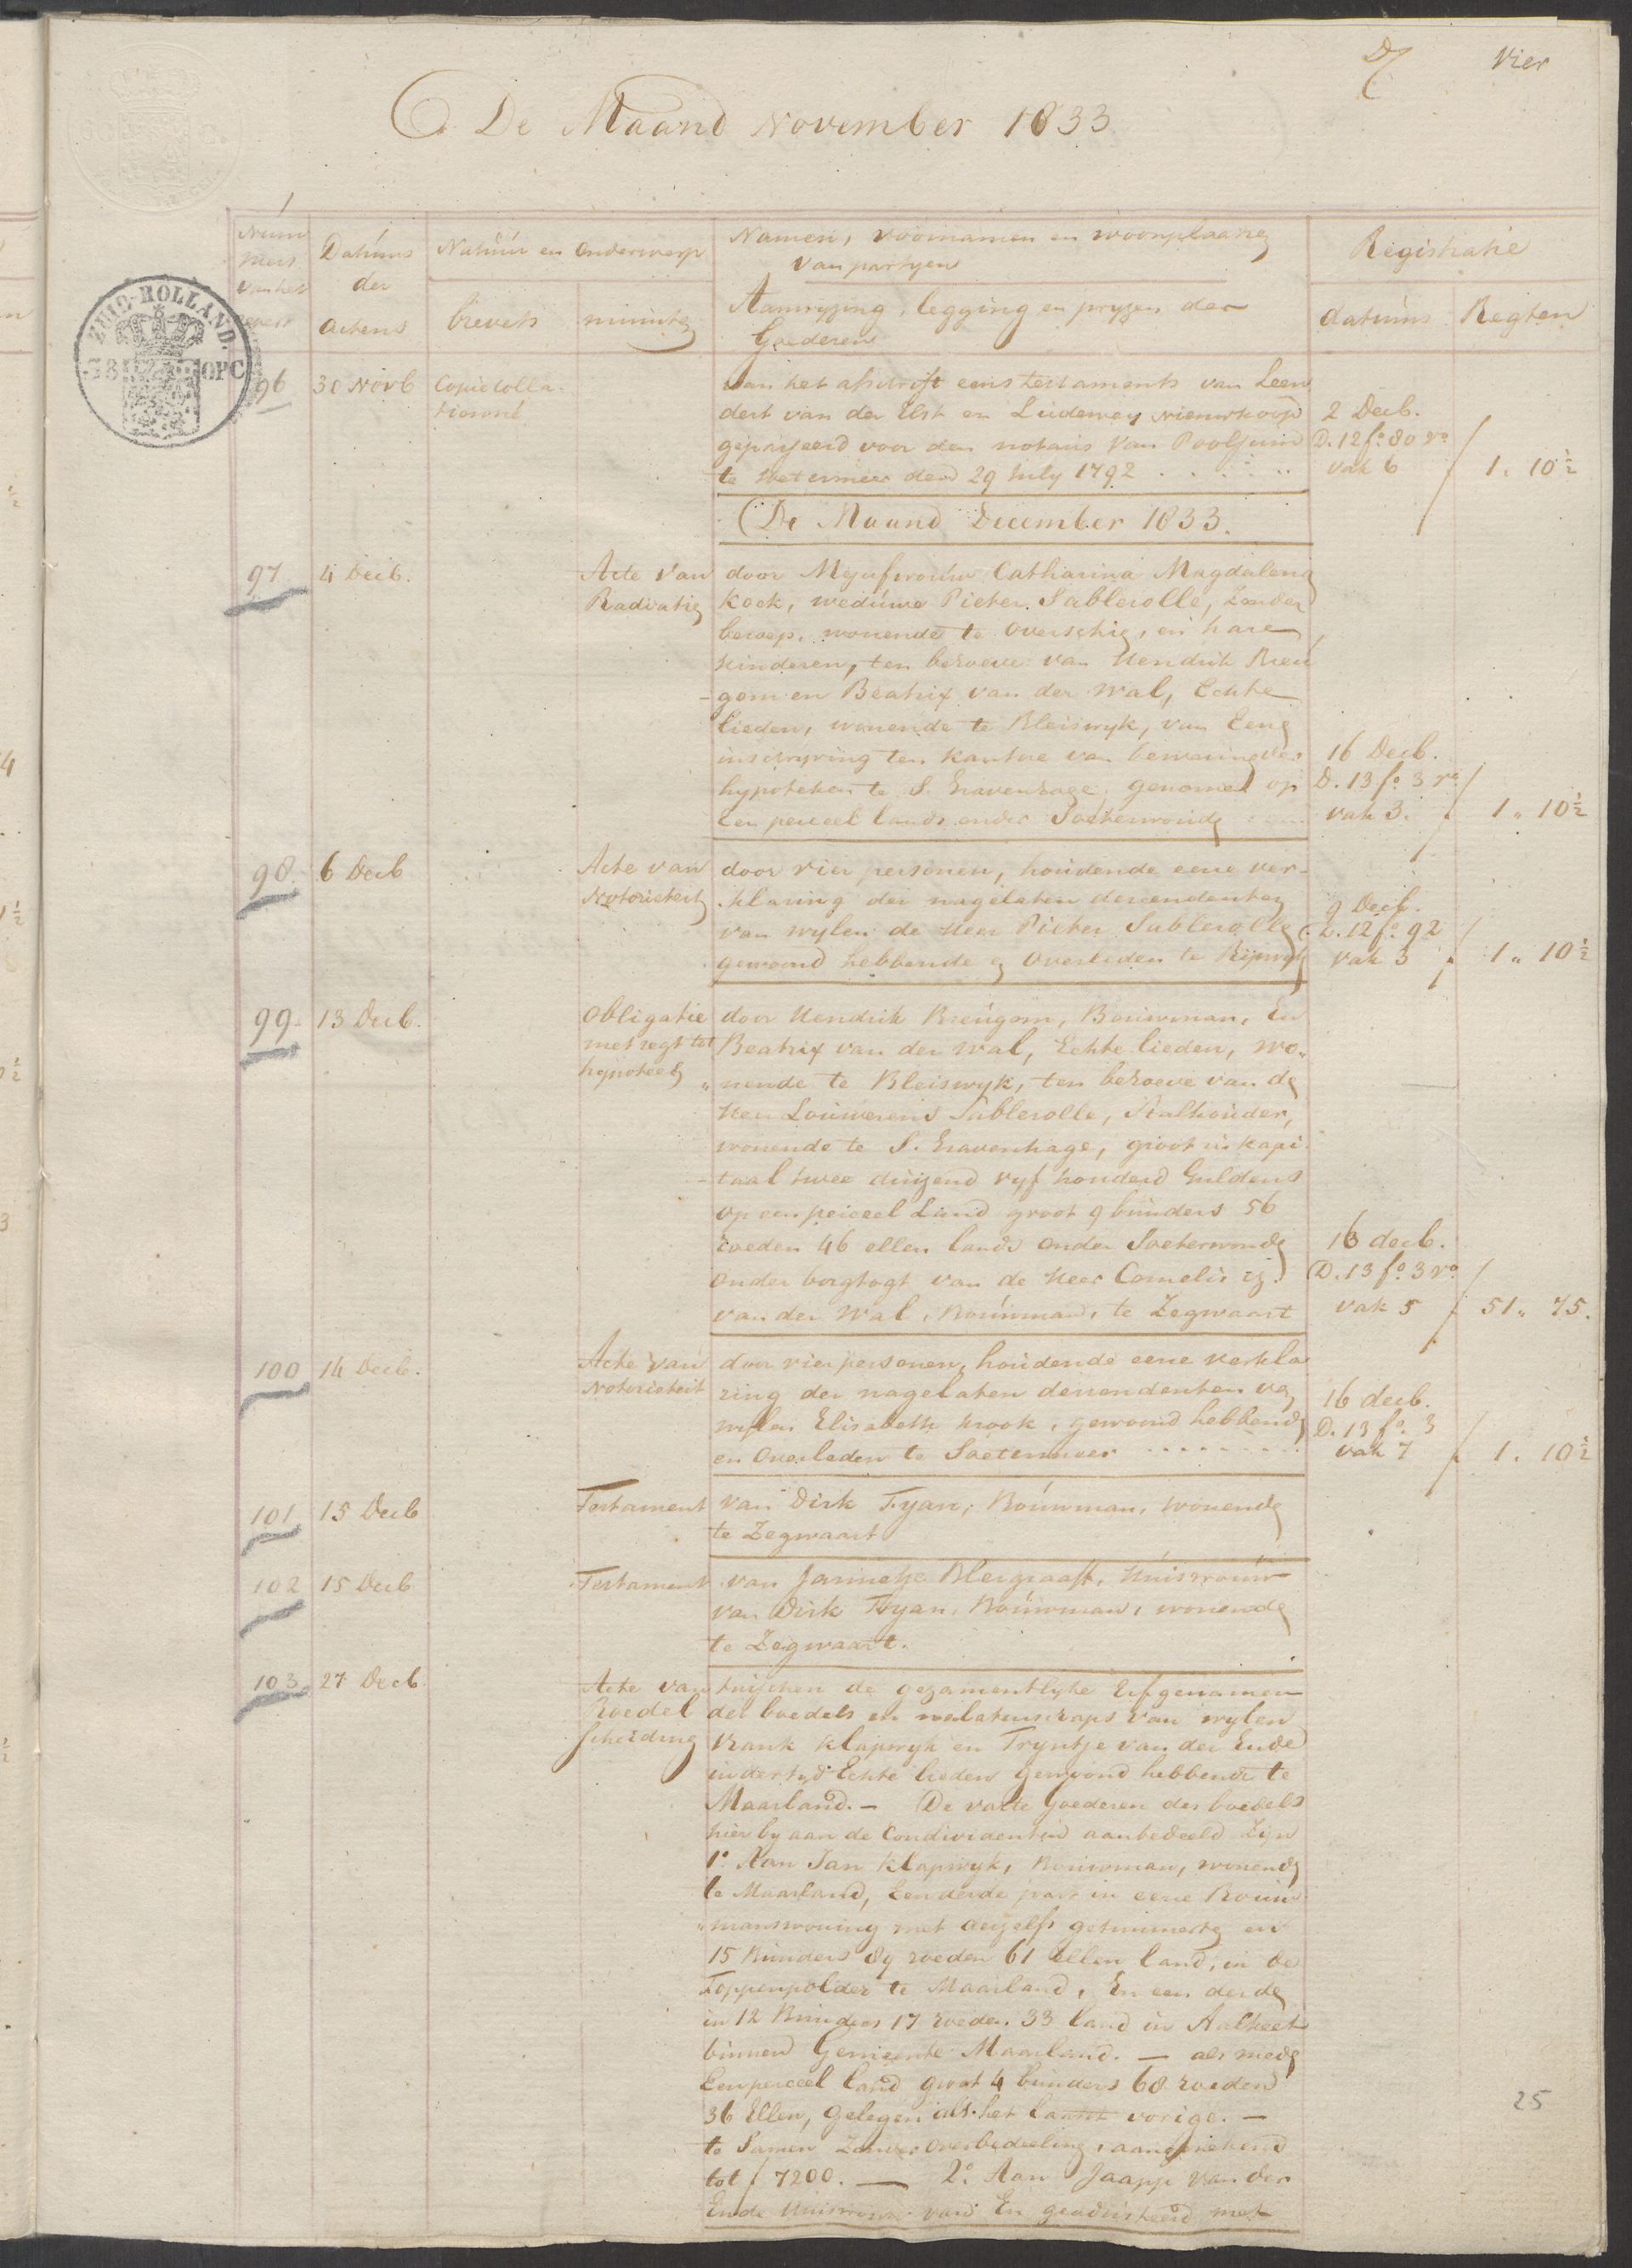 Vier
De Maand November 1833
Num
mers
van het
Datums
der
actens
Natuur en Onderwerp
brevets
minuten
Namen, voornamen en woonplaatze
van partyen
Aanwyzing, legging en pryzen der
Goederen
Registratie
datums
Regten
ZUID-HOLLAND.
OPC
96
30 Novb
Copie colla
tionné
van het afschrift eens testaments van Leen
dert van der Elst en Ludewey Nieuwkoop
gepasseerd voor den notaris van
te Soetermeer den 29 July 1792
2 Decb.
D. 12 fo. 80 vo
vak 6
1 " 10 ½
De Maand December 1833.
97
4 Decb.
Acte van
Radiatie
door Mejufvrouw Catharina Magdalena
Kock, weduwe Pieter Sablerolle, Zonder
beroep, wonende te Overschie, en hare
kinderen, ten behoeve van Hendrik Breu
gom en Beatrix van der Wal, Echte
lieden, wonende te Bleiswyk, van Eene
inschryving ten kantore van bewaring der
hypotheken te S. Gravenhage, genomen op
Een perceel lands onder Soeterwoude
16 Decb.
D. 13 fo. 3 ro
vak 3.
1 " 10 ½
98.
6 Decb
Acte van
Notorieteit
door vier personen, houdende eene ver-
klaring der nagelaten descendenten
van wylen de Heer Pieter Sablerolle
gewoond hebbende en Overleden te Rijswyk
9 Decb.
D. 12 fo. 92
vak 3
1 " 10 ½
99.
13 Decb.
Obligatie
met regt tot
hypoteek
door Hendrik Breugom, Bouwman, En
Beatrix van der Wal, Echte lieden, wo"
" nende te Bleiswyk, ten behoeve van de
Heer Louwerens Sablerolle, Stalhouder,
wonende te S. Gravenhage, groot in kapi
-taal twee duizend vyf honderd Guldens
op een perceel Land groot 9 bunders 56
roeden 46 ellen lands onder Soeterwoude
onder borgtogt van de Heer Cornelis
van der Wal, Bouwman, te Zegwaart
16 decb.
D. 13 fo. 3 vo
vak 5
51 " 75.
100
14 Decb.
Acte van
Notorieteit
door vier personen, houdende eene verkla
ring der nagelaten descendenten van
wylen Elisabeth Krook, gewoond hebbende
en Overleden te Soetermeer
16 decb.
D. 13 fo. 3
vak 7
1 " 10 ½
101
15 Decb
Testament
van Dirk Tyan, Bouwman, wonende
te Zegwaart
102
15 Decb
Testament
van Jannetje Blergraaft, Huisvrouw
van Dirk Tyan, Bouwman, wonende
te Zegwaart.
103.
27 Decb.
Acte van
Boedel
scheiding
tusschen de gezamentlyke Erfgenamen
des boedels en nalatenschaps van wylen
Krank Klapwyk en Tryntje van der Ende
in der tyd Echte lieden gewoond hebbende te
Maasland. — De vaste Goederen des boedels
hier by aan de Condividenten aanbedeeld Zyn
1o. Aan Jan Klapwyk, Bouwman, wonende
te Maasland, Een derde part in eene Bouw
" manswoning met aenzelfs getimmerte en
15 Bunders 89 roeden 61 Ellen land, in de
Foppenpolder te Maasland, En een derde
in 12 Bunders 17 roeden 33 land in Aalkeet
binnen Gemeente Maasland. — als mede
Een perceel land groot 4 bunders 68 roeden
36 Ellen, Gelegen als het laatst vorige. —
te Samen Zonder Overbedeeling, aangerekend
tot f 7200. — 2o. Aan Jaapje van der
Ende Huisvrouw van En geadsisteerd met
25